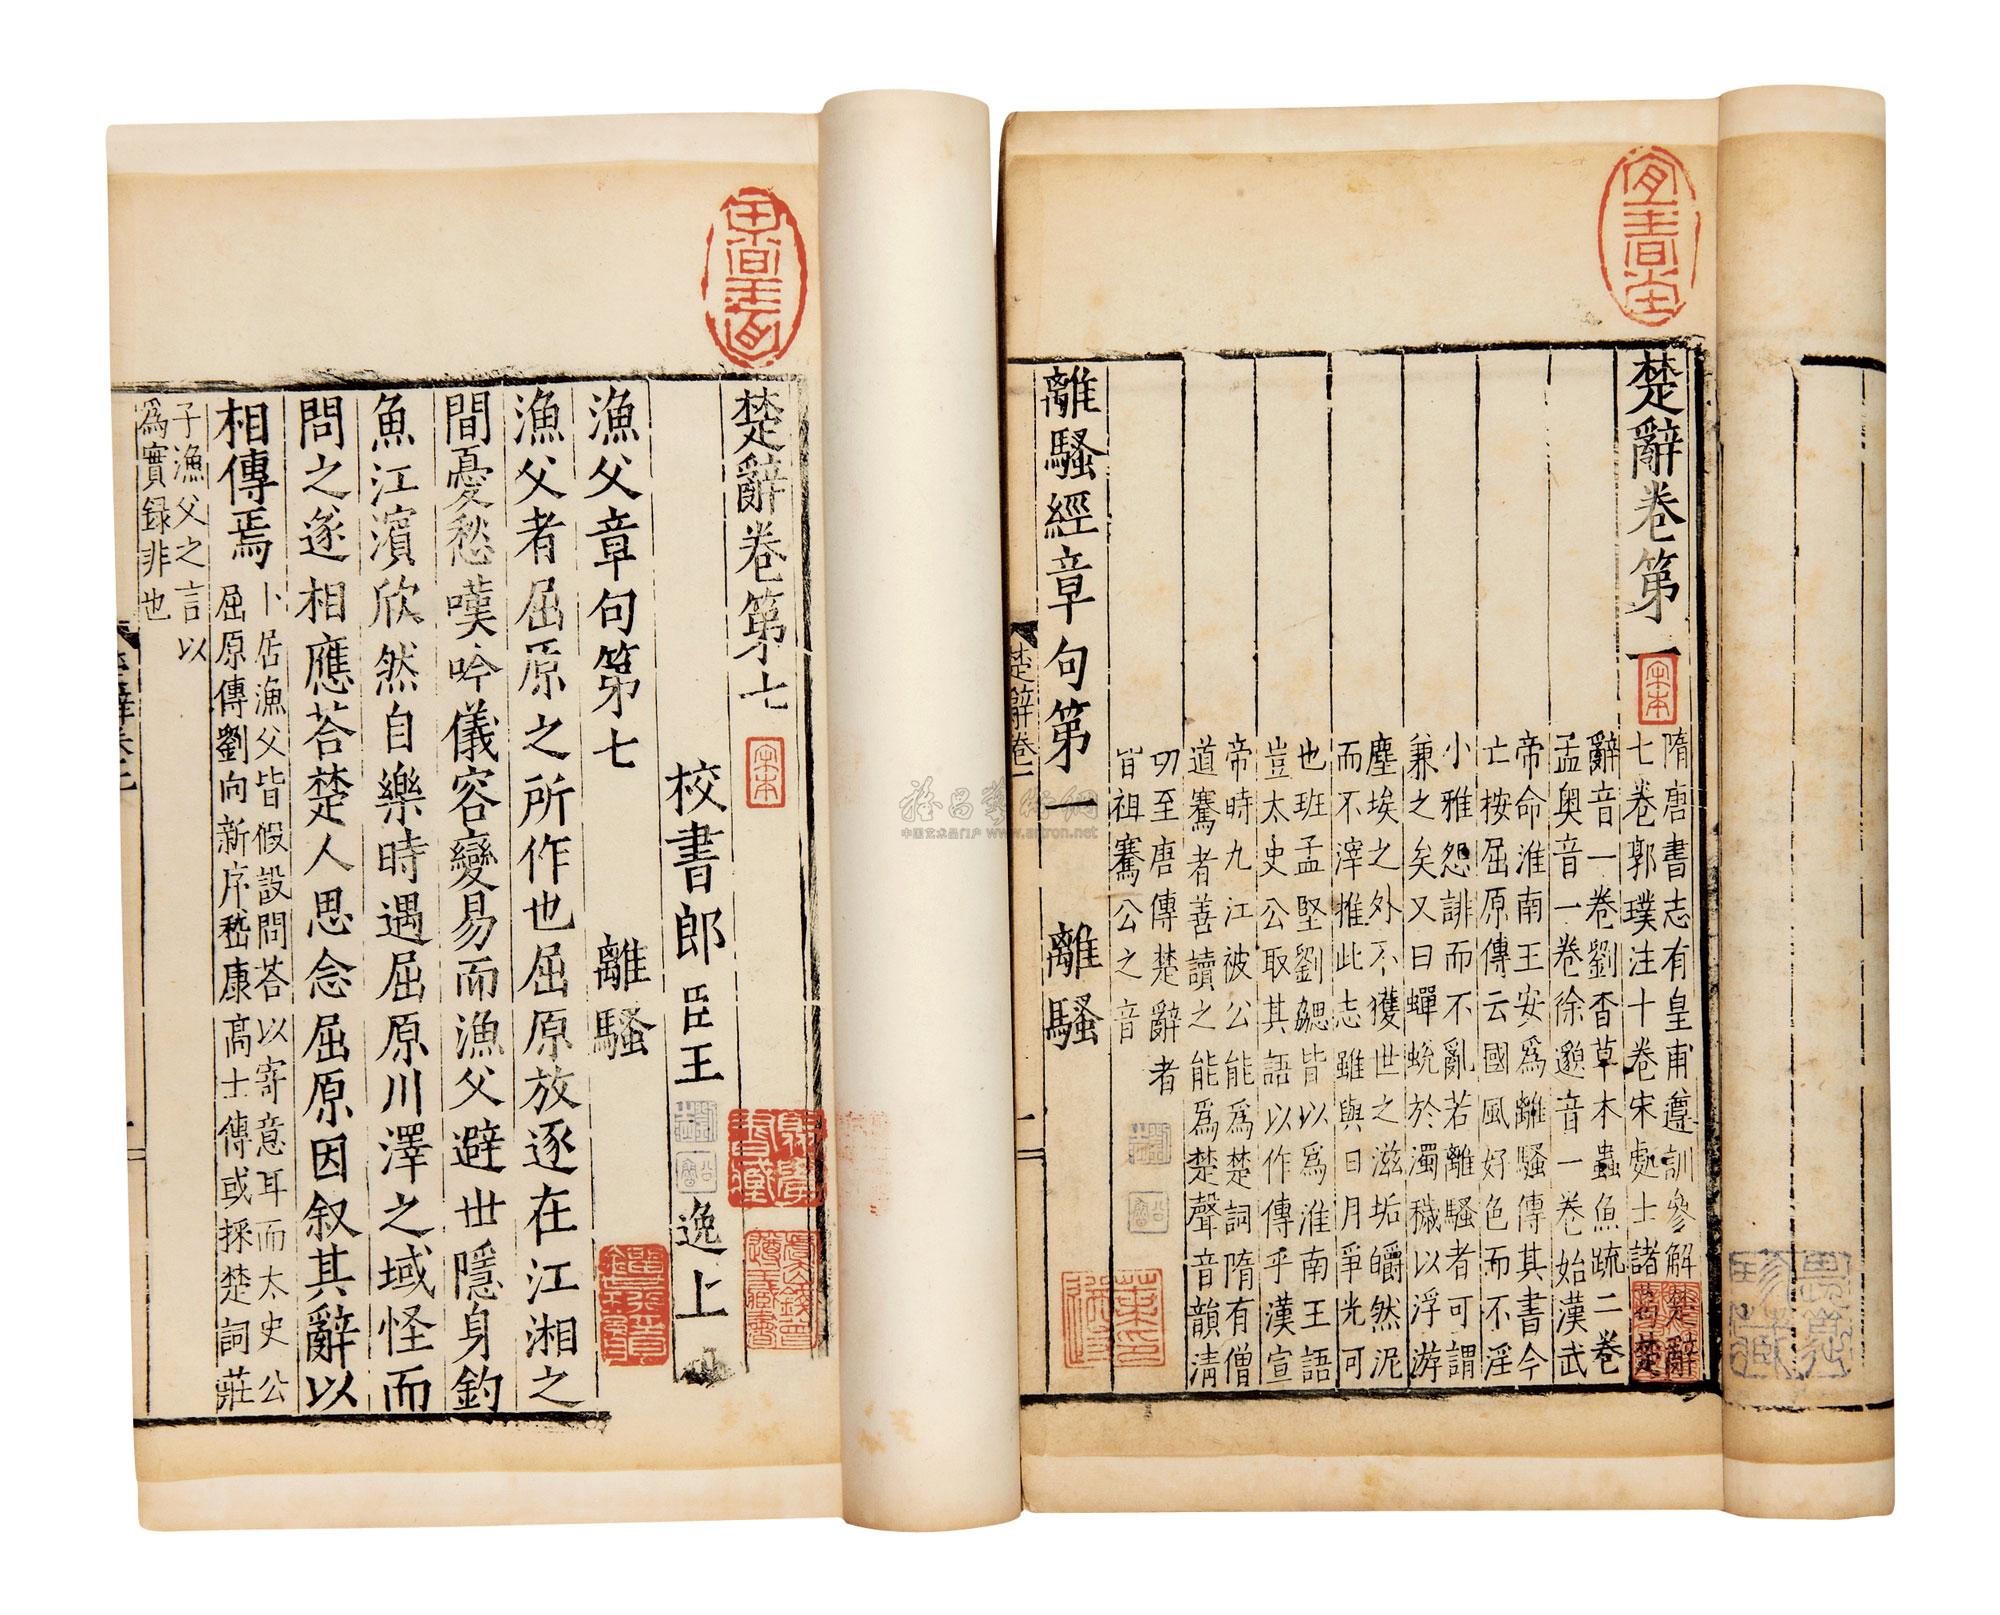 楚辭卷第一
隋唐書志有皇甫遵訓參解楚辭
七卷郭璞注十卷宋處士諸葛楚
辭音一卷劉杳草木蟲魚疏二卷
孟奧音一卷徐邈音一卷始漢武
帝命淮南王安為離騷傳其書今
亡按屈原傳云國風好色而不淫
小雅怨誹而不亂若離騷者可謂
兼之矣又曰蟬蛻於濁穢以浮游
塵埃之外不獲世之滋垢皭然泥
而不滓推此志雖與日月爭光可
也班孟堅劉勰皆以為淮南王語
豈太史公取其語以作傳乎漢宣
帝時九江被公能為楚詞隋有僧
道騫者善讀之能為楚聲音韻清
切至唐傳楚辭者
皆祖騫公之音
離騷經章句第一 離騷
楚辭卷一
宋本
楚辭卷第七
宋本
校書郎臣王逸上
漁父章句第七 離騷
漁父者屈原之所作也屈原放逐在江湘之
間憂愁嘆吟儀容變易而漁父避世隱身釣
魚江濱欣然自樂時遇屈原川澤之域怪而
問之遂相應荅楚人思念屈原因叙其辭以
相傳焉
卜居漁父皆假設問荅以寄意耳而太史公
屈原傳劉向新序嵇康高士傳或採楚詞莊
子漁父之言以
為實録非也
中国艺术品门户 www.artron.net